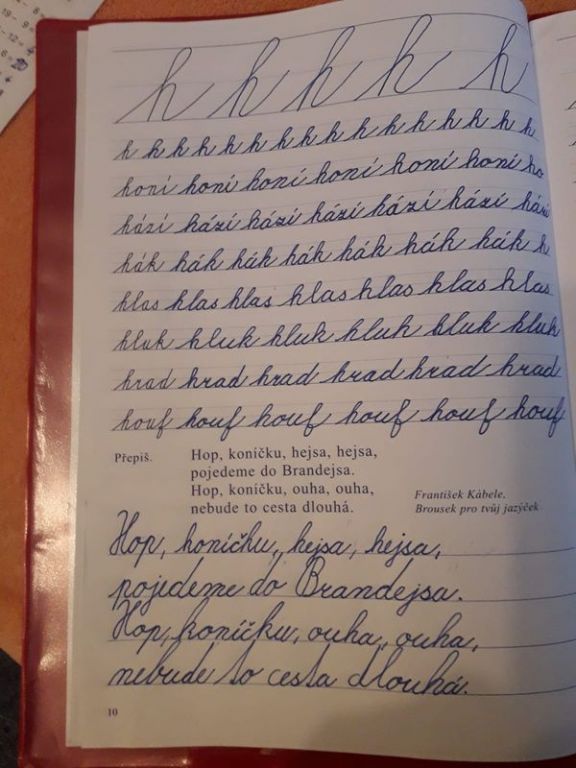 h h h h h
h h h h h h h h h h h h h h h h
honí honí honí honí honí honí ho
hází hází hází hází hází hází hází
hák hák hák hák hák hák hák h
hlas hlas hlas hlas hlas hlas hlas
hluk hluk hluk hluh hluk hluh
hrad hrad hrad hrad hrad hrad
houf houf houf houf houf houf
Přepiš. Hop, koníčku, hejsa, hejsa,
pojedeme do Brandejsa.
Hop, koníčku, ouha, ouha,
nebude to cesta dlouhá.
František Kábele,
Brousek pro tvůj jazýček
Hop, honíčhu, hejsa, hejsa,
pojedeme do Brandejsa.
Hop, koníčku, ouha, ouha,
nebude to cesta dlouhá.
10